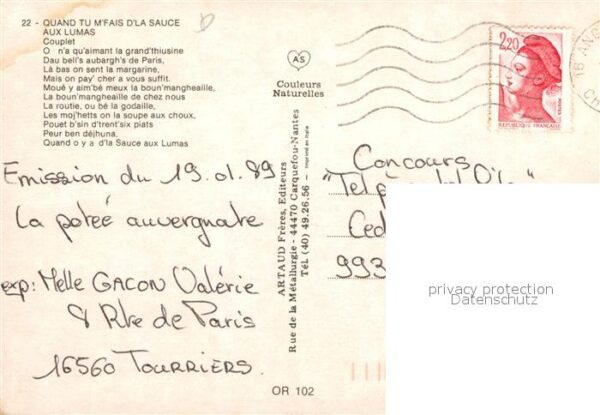 22 - QUAND TU M'FAIS D'LA SAUCE
AUX LUMAS
Couplet
O n'a qu'aimant la grand'thiusine
Dau bell's aubargh's de Paris,
Là bas on sent la margarine,
Mais on pay' cher a vous suffit.
Moué y aim'bé meux la boun'mangheaille,
La boun'mangheaille de chez nous
La routie, ou bé la godaille,
Les moj'hetts on la soupe aux choux,
Pouet b'sin d'trent'six piats
Peur ben déjhuna,
Quand o y a d'la Sauce aux Lumas
Emission du 19.01.89
La poteé auvergnate
exp: Melle GACON Valérie
8 Rte de Paris
16560 TOURRIERS.
OR 102
AS
Couleurs
Naturelles
ARTAUD Frères, Editeurs
Rue de la Métallurgie - 44470 Carquefou-Nantes
Tél. (40) 49.26.56 - Imprimé en Italie
2,20
REPUBLIQUE FRANÇAISE
16 ANG
Concours
Ced
993
privacy protection
Datenschutz